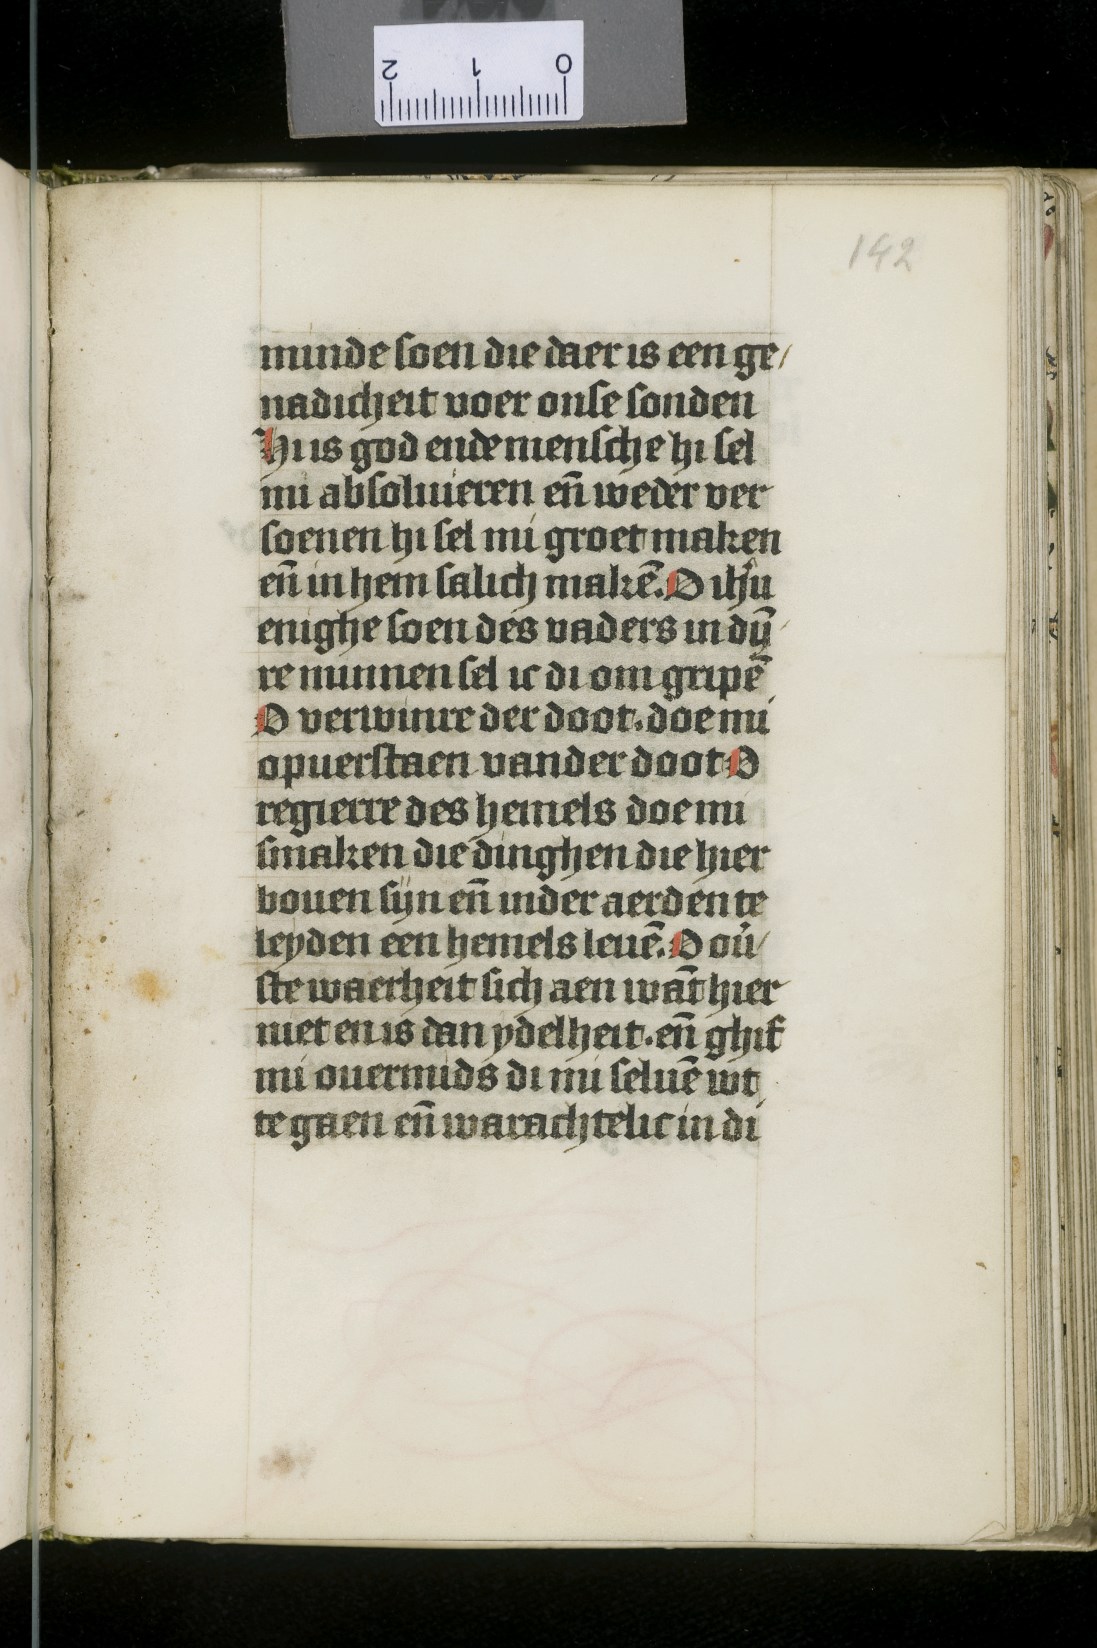 2 1 0
142
minde soen die daer is een ge/
nadicheit voer onse sonden
Hi is god ende mensche hi sel
mi absoluieren en̄ weder ver
soenen hi sel mi groet maken
en̄ in hem salich makē. O ihu̅
enighe soen des vaders in dy̅
re minnen sel ic di om gripē
O verwinre der doot. doe mi
opuerstaen vander doot O
regierre des hemels doe mi
smaken die dinghen die hier
bouen sijn en̄ inder aerden te
leyden een hemels leuē. O ou̅/
ste waerheit sich aen wāt hier
niet en is dan ydelheit. en̄ ghif
mi ouermids di mi seluē wt
te gaen en̄ warachtelic in di